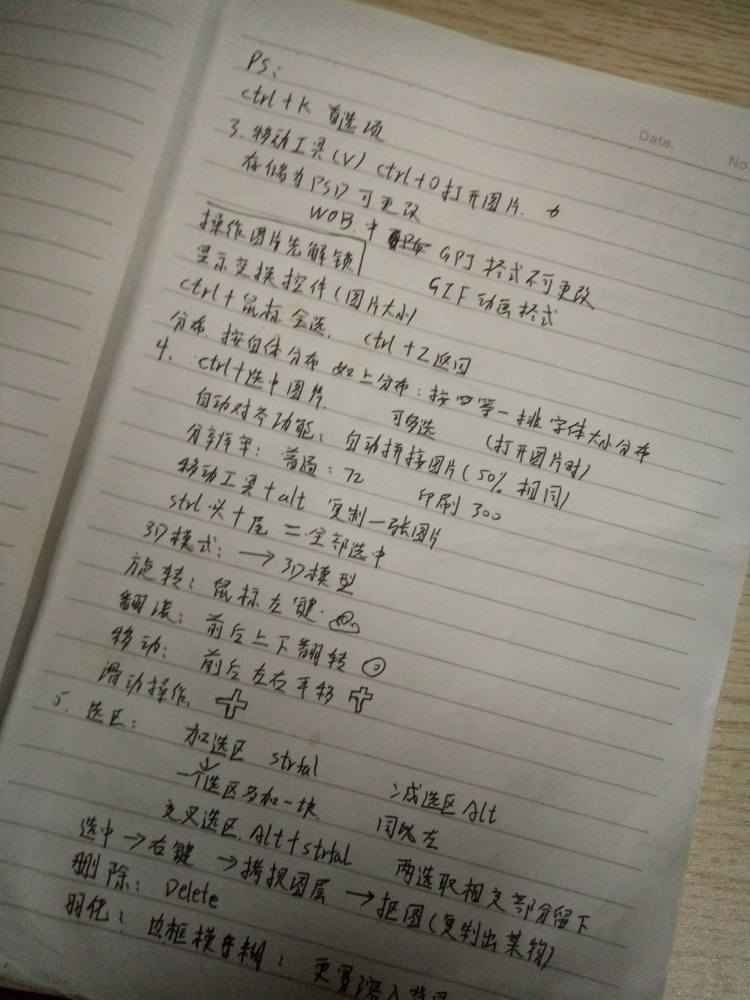 Date.
No.
PS:
ctrl+K 首选项
3. 移动工具(V) ctrl+O打开图片.
存储为PSD可更改
WOB. 中 GPJ 格式不可更改
操作图片先解锁 GIF 动画格式
显示变换控件(图片大小)
ctrl+鼠标 全选. ctrl+Z返回
分布. 按自体分布 如上分布: 按 等一排 字体大小分布
4. ctrl+选中图片. 可多选 (打开图片时)
自动对齐功能: 自动拼接图片(50%相同)
分辨率: 普通: 72 印刷 300
移动工具+alt 复制一张图片
strl 头+尾 = 全部选中
3D模式: → 3D模型
旋转: 鼠标左键.
翻滚: 前后上下翻转
移动: 前后左右平移
滑动操作
5. 选区: 加选区 strfal 减选区 Alt
一个选区多加一块 同
交叉选区. Alt+strfal 两选取相交部分留下
选中→右键→拷贝图层→抠图(复制出某物)
删除: Delete
羽化: 边框模 糊: 更 溶入背景